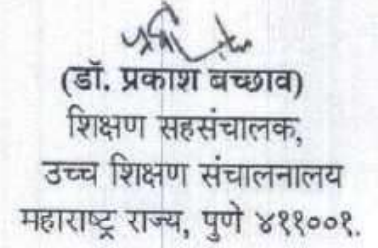 (डॉ. प्रकाश बच्छाव)
शिक्षण सहसंचालक,
उच्च शिक्षण संचालनालय
महाराष्ट्र राज्य, पुणे ४११००१.